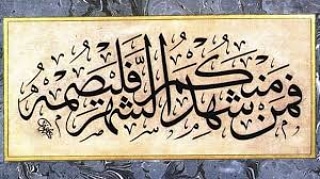 فَمَنْ شَهِدَ مِنْكُمُ الشَّهْرَ فَلْيَصُمْهُ